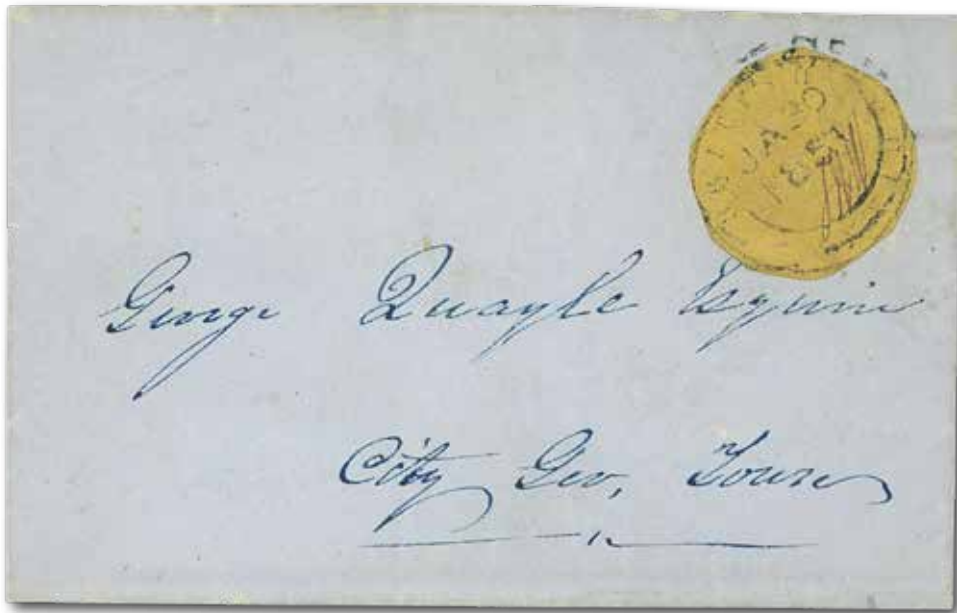 JA 20
1851
George Quayle Esquire
City Geo, Town